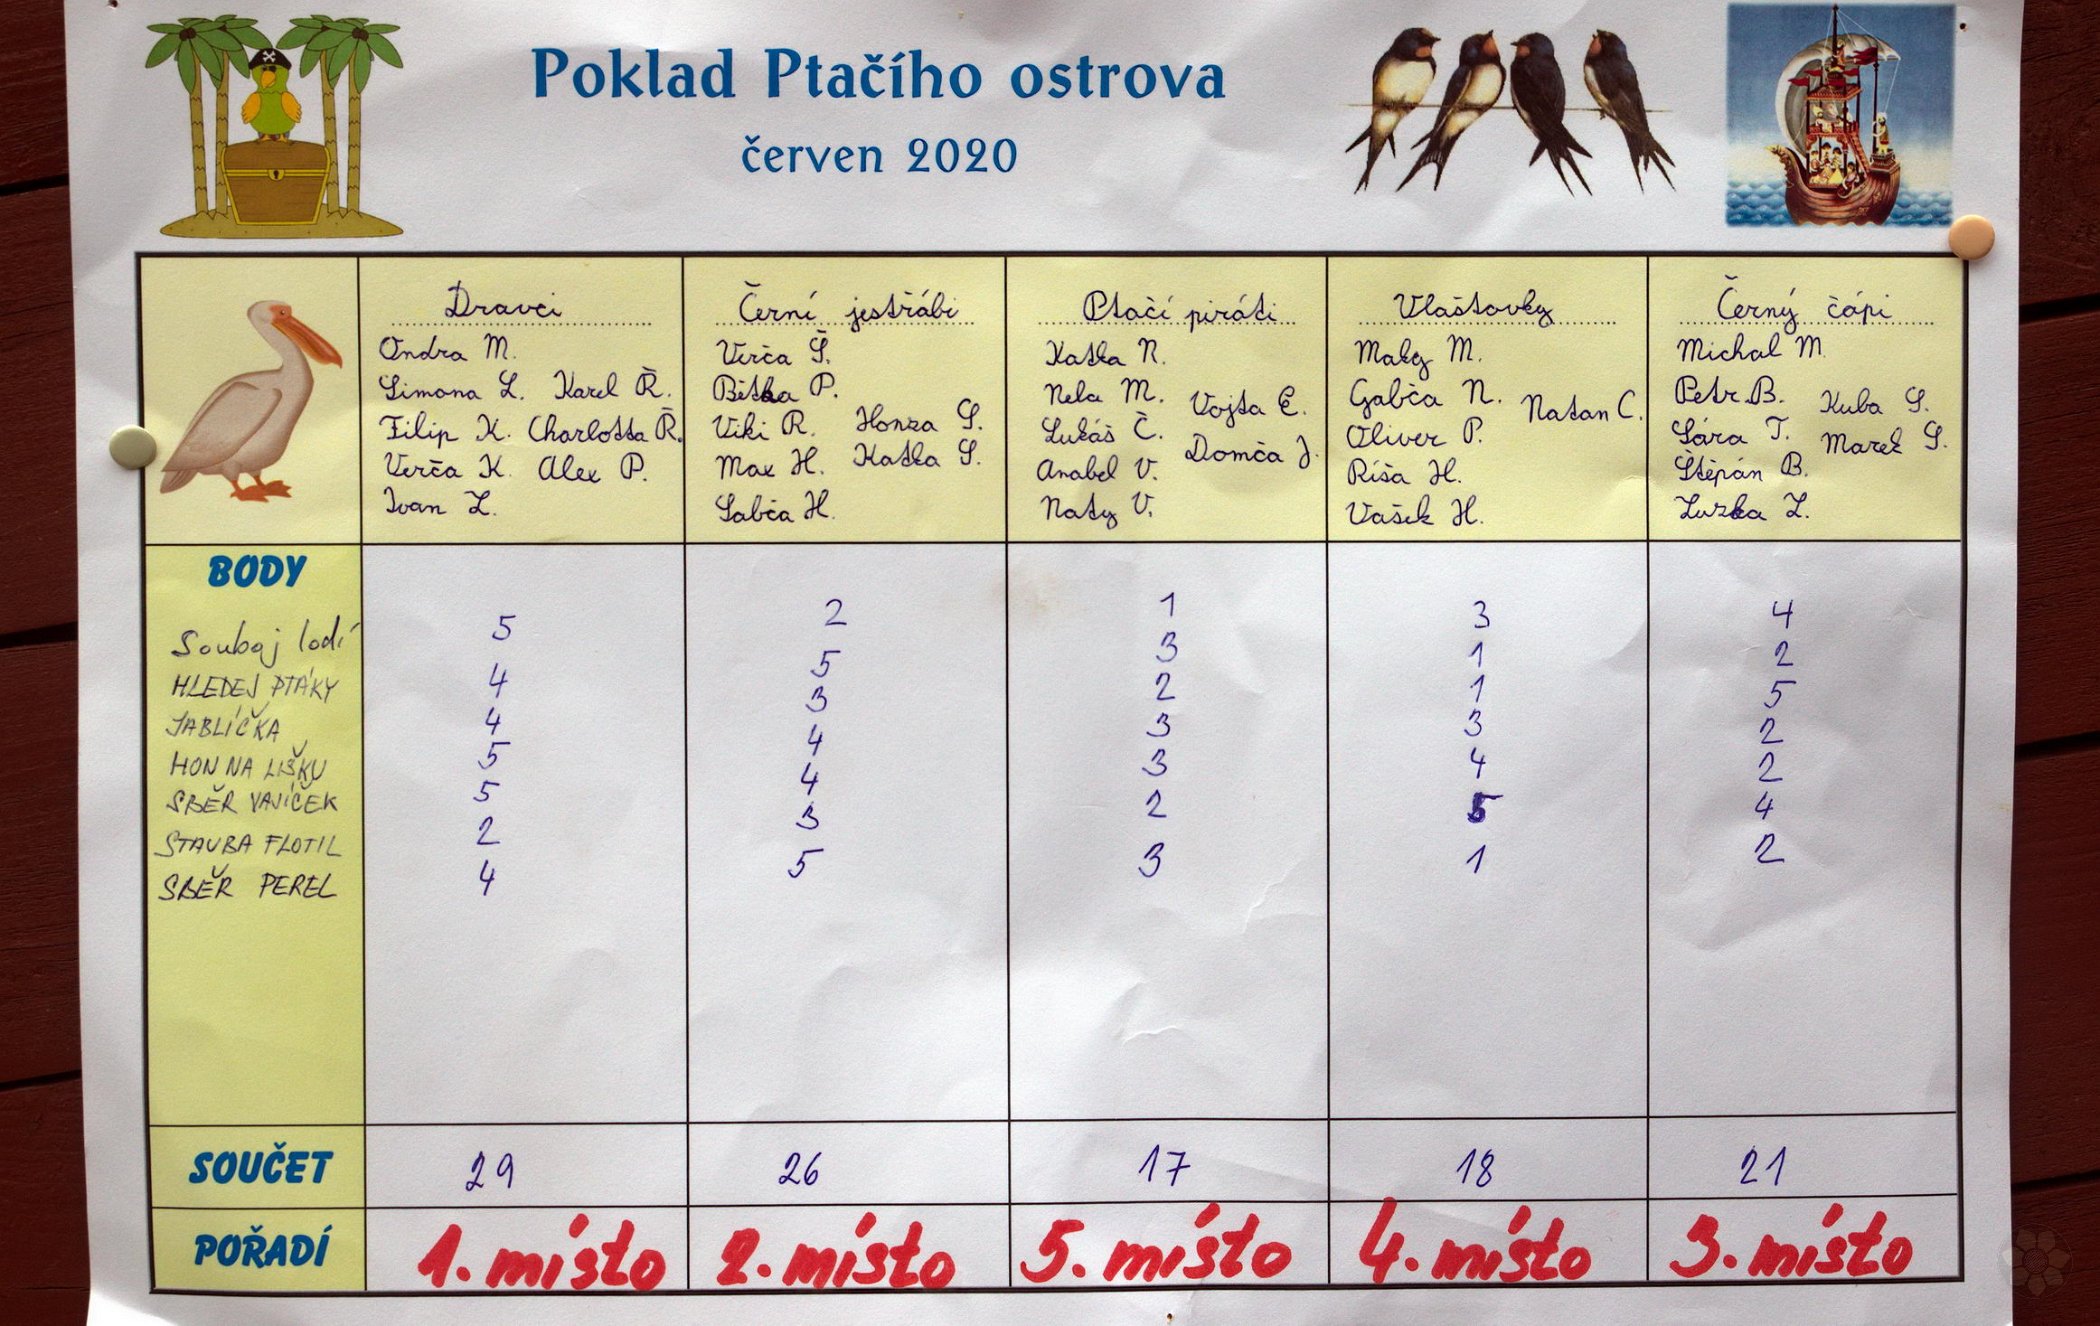 Poklad Ptačího ostrova
červen 2020
Dravci
Ondra M.
Simona L. Karel Ř.
Filip K. Charlotta Ř.
Verča K. Alex P.
Ivan L.
Černí jestřábi
Verča Š.
Bětka P.
Viki R. Honza S.
Max H. Katka S.
Sabča H.
Ptačí piráti
Katka N.
Nela M. Vojta C.
Lukáš Č. Domča J.
Anabel V.
Naty V.
Vlaštovky
Maky M.
Gabča N. Natan C.
Oliver P.
Ríša H.
Vašek H.
Černý čápi
Michal M.
Petr B. Kuba S.
Sára T. Marek S.
Štěpán B.
Luzka L.
BODY
Souboj lodí 5 2 1 3 4
HLEDEJ PTÁKY 4 5 3 1 2
JABLÍČKA 4 3 2 1 5
HON NA LIŠKU 5 4 3 3 2
SBĚR VAJÍČEK 5 4 3 4 2
STAVBA FLOTIL 2 3 2 5 4
SBĚR PEREL 4 5 3 1 2
SOUČET 29 26 17 18 21
POŘADÍ 1. místo 2. místo 5. místo 4. místo 3. místo